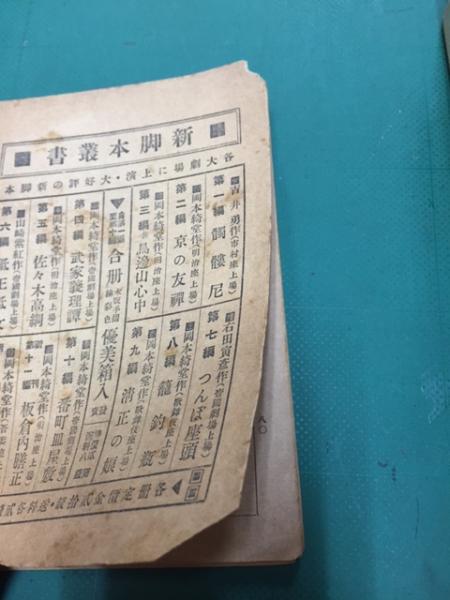 新脚本叢書
各大劇場に上演・大好評の新脚本
吉井勇作(市村座上場)
第一編 髑髏尼
岡本綺堂作(明治座上場)
第二編 京の友禪
第三編 鳥邊山心中
合册
優美箱入
岡本綺堂作(帝國劇場上場)
第四編 武家義理譚
岡本綺堂作(明治座上場)
第五編 佐々木高綱
山崎紫紅作(帝國劇場上場)
第六編
石田寅彦作(帝國劇場上場)
第七編 つんぼ座頭
岡本綺堂作(歌舞伎座上場)
第八編 籠釣瓶
岡本綺堂作(歌舞伎座上場)
第九編 清正の娘
岡本綺堂作
第十編 番町皿屋敷
岡本綺堂作(明治座上場)
第十一編 板倉内膳正
岡本綺堂作
各册定價金貳拾錢・送料各貳錢